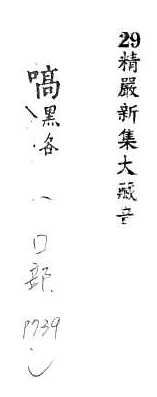 29精嚴新集大藏音
嗃黑各
口部
P739